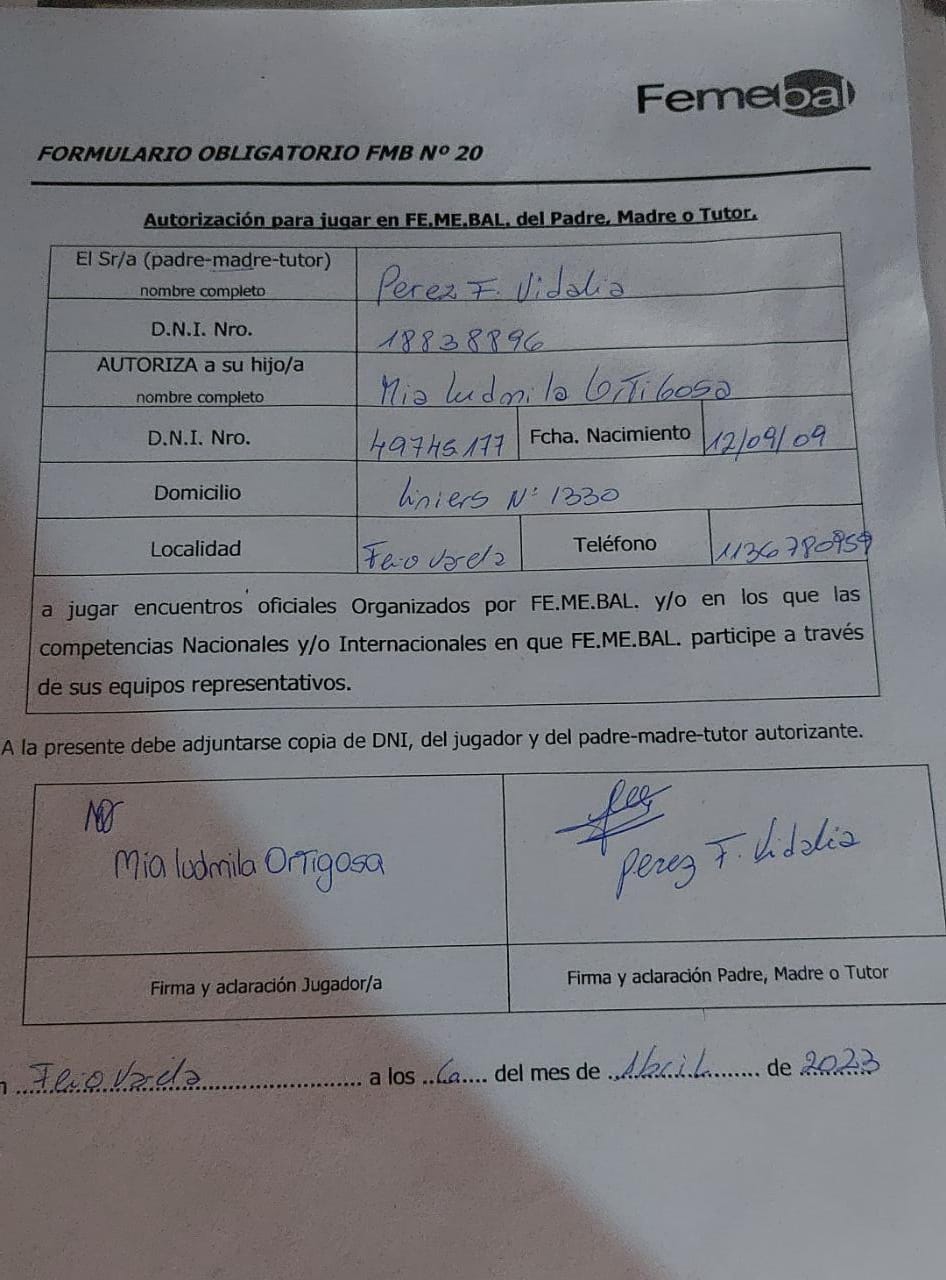 Femebal
FORMULARIO OBLIGATORIO FMB Nº 20
Autorización para jugar en FE.ME.BAL. del Padre, Madre o Tutor.
El Sr/a (padre-madre-tutor)
nombre completo
Perez F. Vidalia
D.N.I. Nro.
18838896
AUTORIZA a su hijo/a
nombre completo
Mia Ludmila Ortigosa
D.N.I. Nro.
49745177
Fcha. Nacimiento
12/09/09
Domicilio
Liniers Nº 1330
Localidad
Fcio Varela
Teléfono
1136780959
a jugar encuentros oficiales Organizados por FE.ME.BAL. y/o en los que las
competencias Nacionales y/o Internacionales en que FE.ME.BAL. participe a través
de sus equipos representativos.
A la presente debe adjuntarse copia de DNI, del jugador y del padre-madre-tutor autorizante.
Mia Ludmila Ortigosa
Perez F. Vidalia
Firma y aclaración Jugador/a
Firma y aclaración Padre, Madre o Tutor
Fcio Varela a los del mes de Abril de 2023